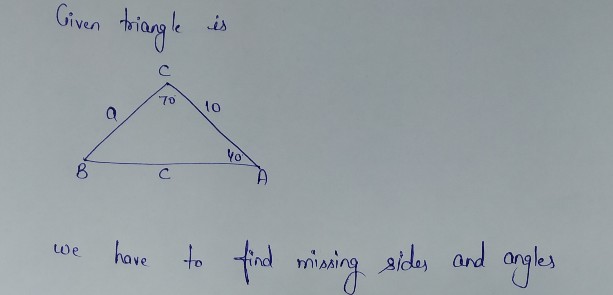 Given triangle is
C
70
a
10
40
B
C
A
we have to find missing sides and angles